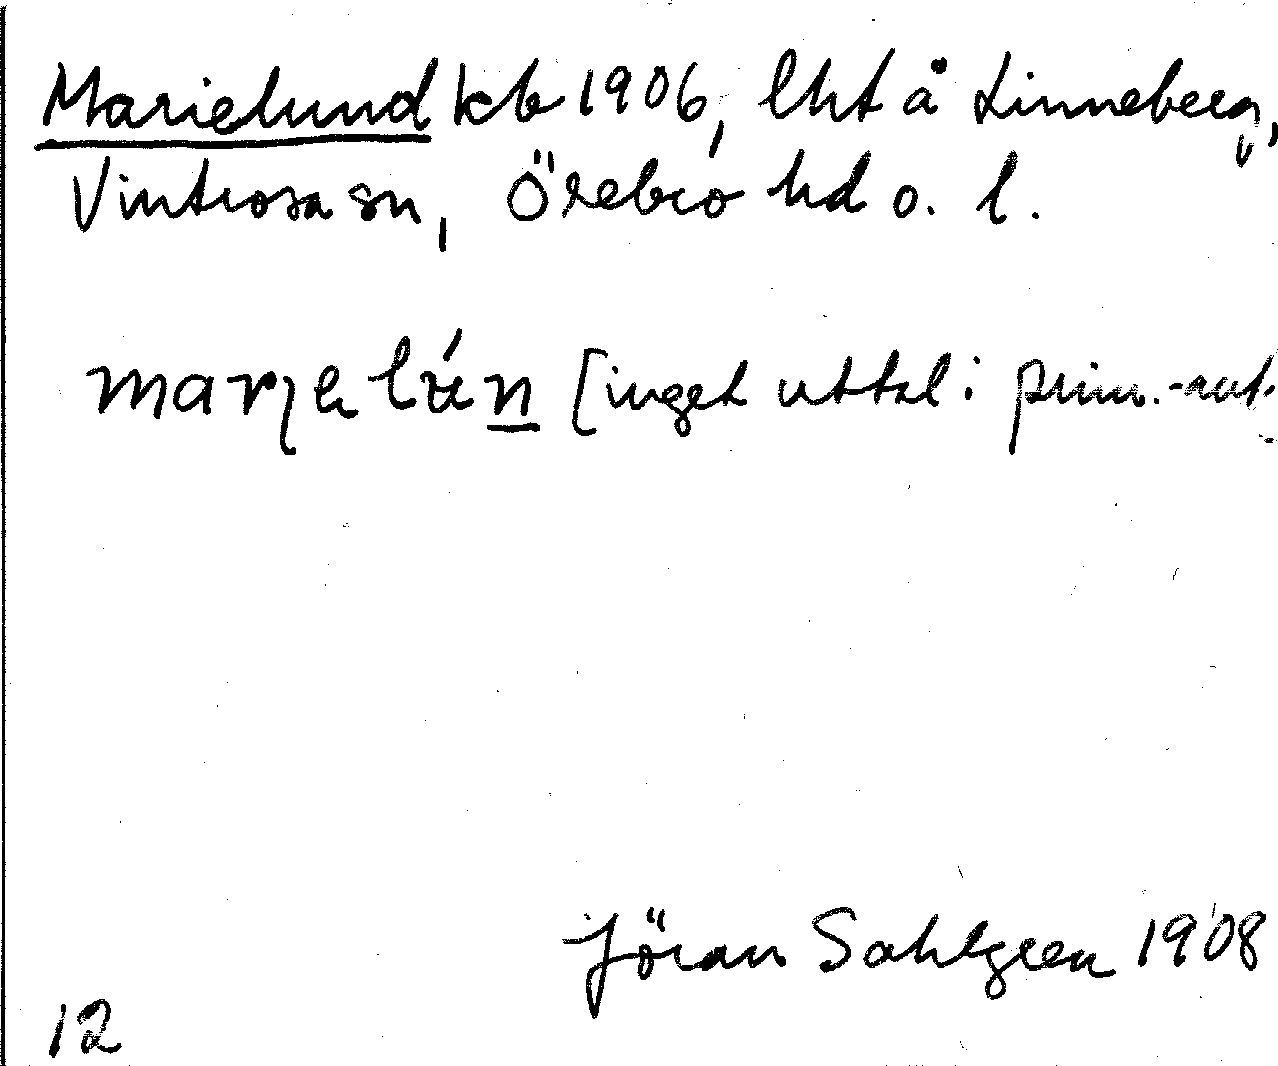 Marielund kb 1906, lht å Linneberg,
Vintrosa sn, Örebro hd o. l.
marjelún [inget uttal i prim.-aut.
Jöran Sahlgren 1908
12